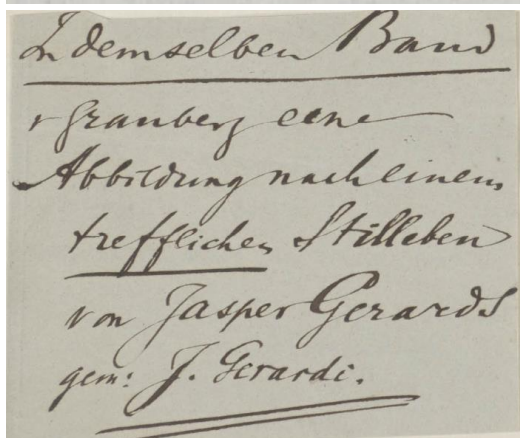 In demselben Band
v Granberg eine
Abbildung nach einem
trefflichen Stilleben
von Jasper Gerards
gem: J. Gerardi.